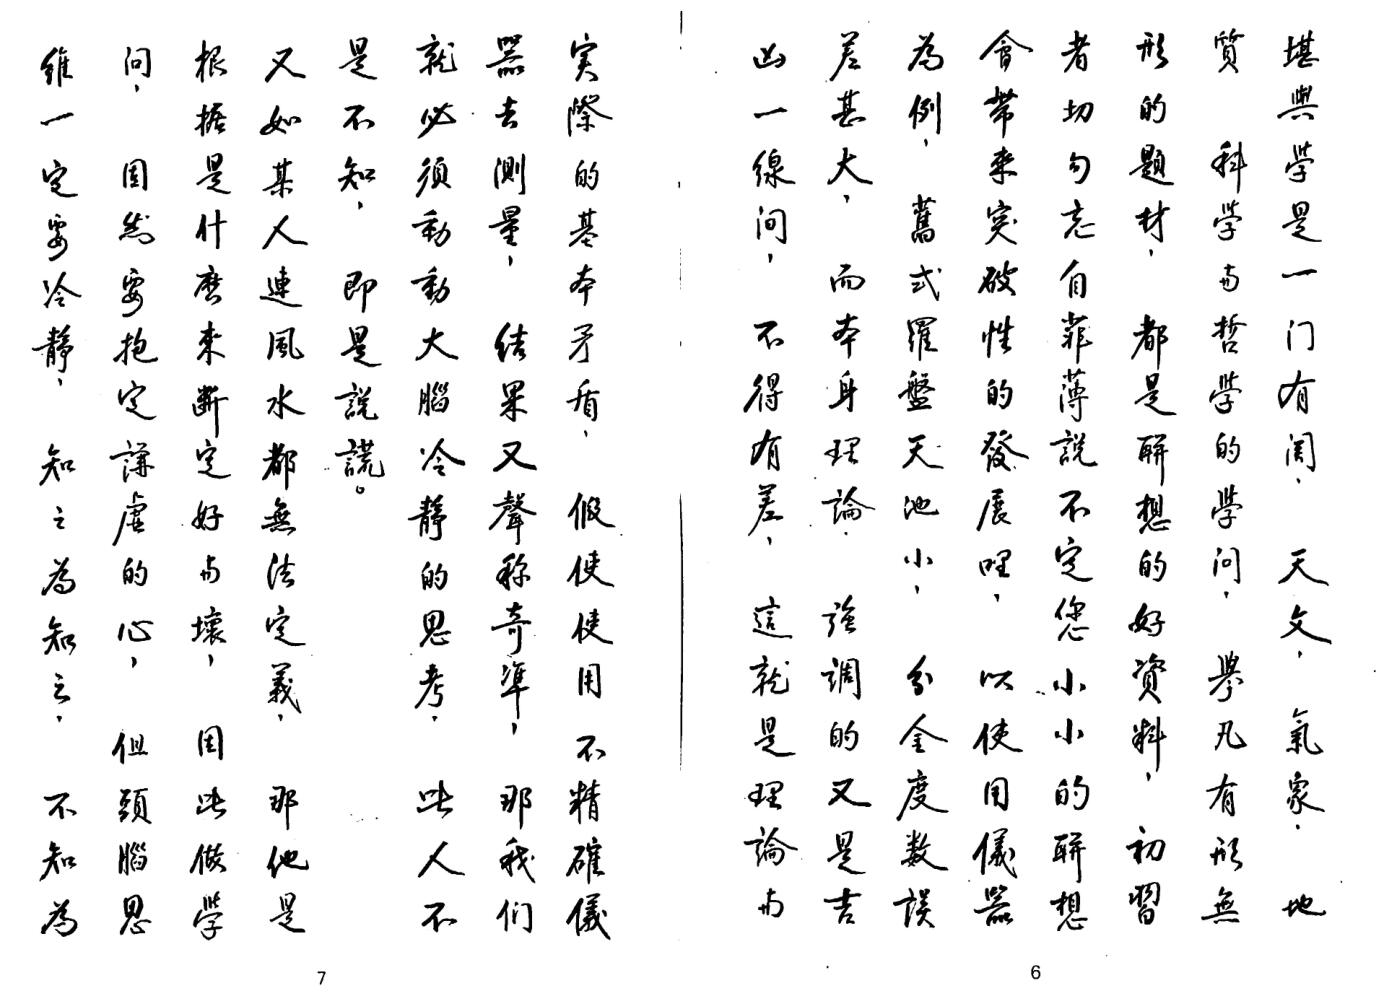 堪輿學是一门有関，天文，氣象，地
質　科學与哲學的學问，舉凡有形無
形的題材，都是聯想的好資料，初習
者切勿忘自菲薄說不定您小小的聯想
會带来突破性的發展哩，以使用儀器
為例，舊式羅盤天池小，分金度数誤
差甚大，而本身理論，強調的又是吉
凶一線间，不得有差，這就是理論与
6
实際的基本矛盾，假使使用不精確儀
器去測量，結果又聲称奇準，那我们
就必須動動大腦冷靜的思考，此人不
是不知，即是說謊。
又如某人連風水都無法定義，那他是
根据是什麽来断定好与壞，因此做學
问，固然要抱定謙虚的心，但頭腦思
維一定要冷静，知之為知之，不知為
7